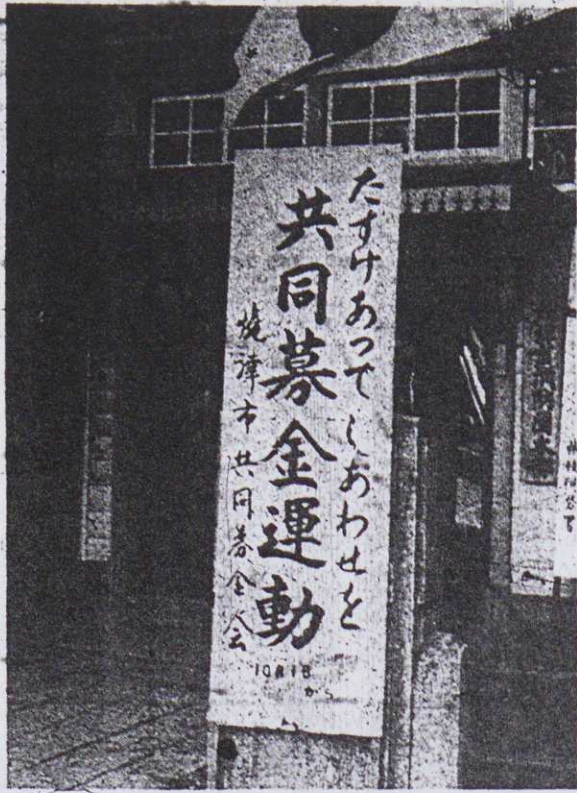 たすけあって しあわせを
共同募金運動
焼津市共同募金会
10月1日
から